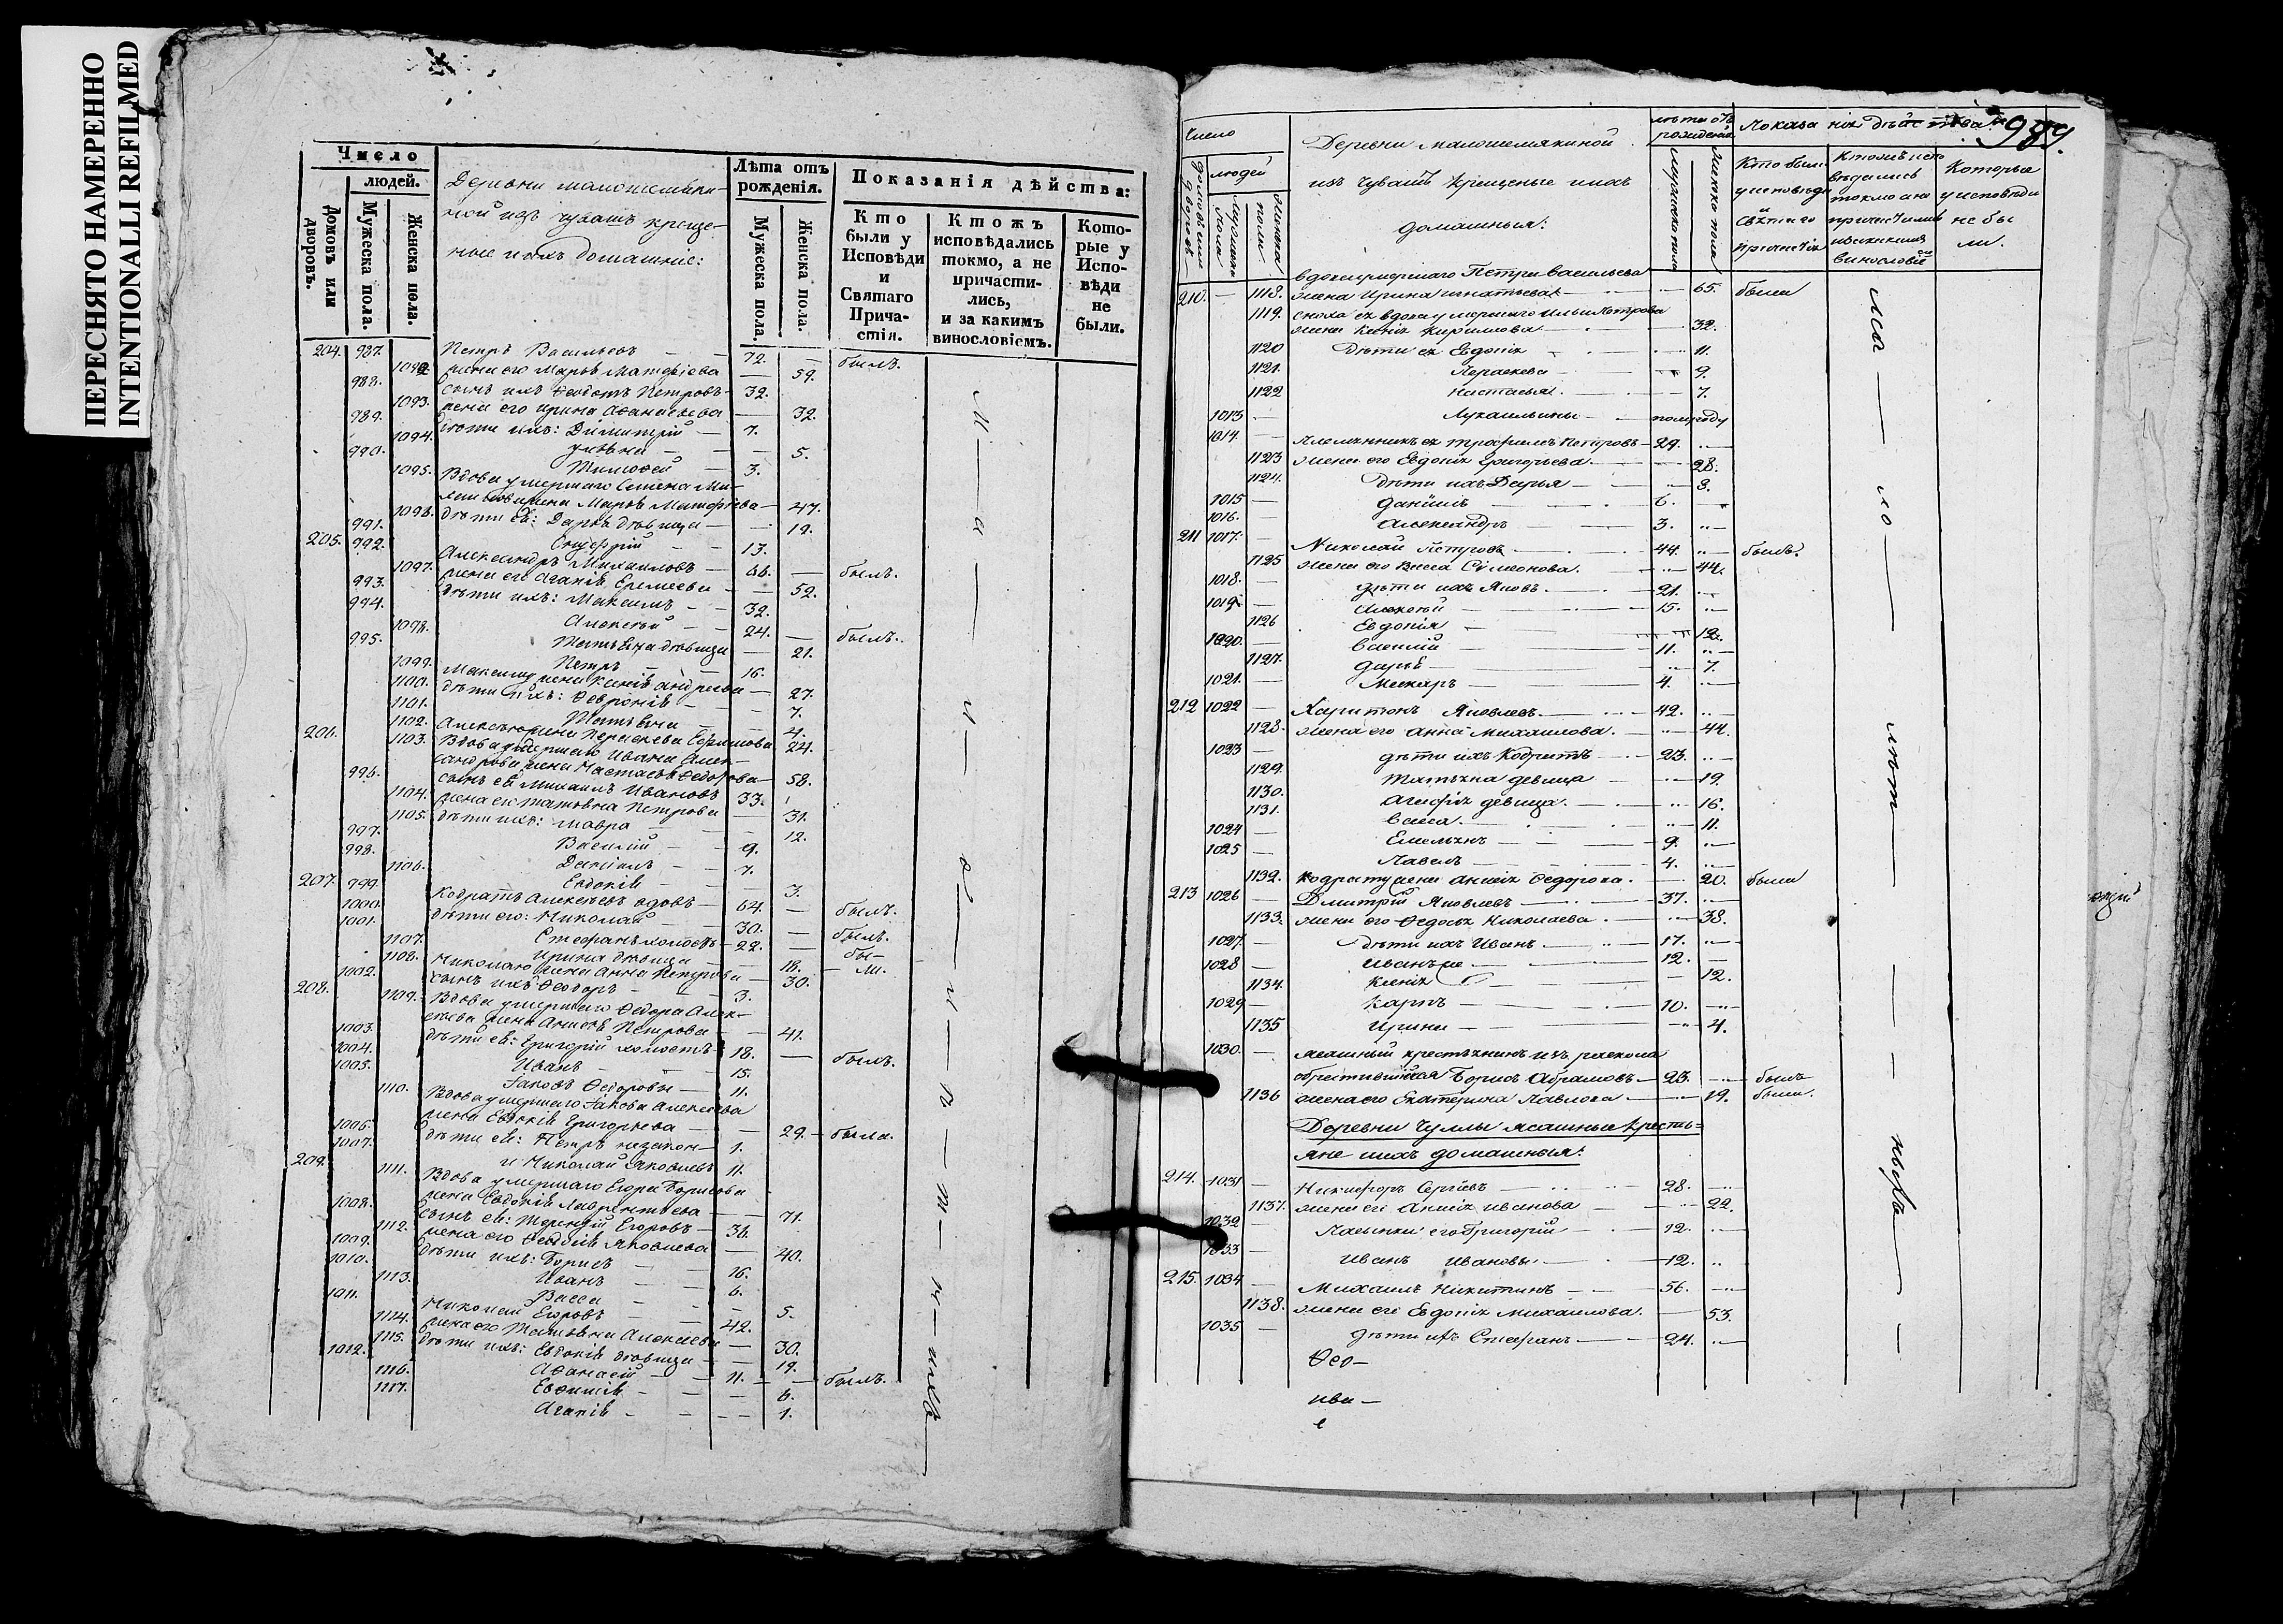 ПЕРЕСНЯТО НАМЕРЕННО
INTENTIONALLI REFILMED
Число
людей.
Домовъ или дворовъ.
Мужеска пола.
Женска пола.
Деревни малошемяки-
ной изъ чувашъ креще-
ные и ихъ домашніе:
Лѣта отъ рожденія.
Мужеска пола.
Женска пола.
Показанія дѣйства:
Кто были у Исповѣди и Святаго Прича-стія.
Ктожъ исповѣдались токмо, а не причасти-лись, и за какимъ винословіемъ.
Кото-рые у Испо-вѣди не были.
204. 987. Петръ Васильевъ — 72. — былъ.
1092 жена его Марья Матфіева — 59.
988. сынъ ихъ Феодотъ Петровъ — 32.
1093. жена его Ирина Афанасьева — 32.
989. дѣти ихъ: Димитрій — 7.
1094. — 5.
990. Тимофей — 3.
1095. Вдова умершаго Семена Ми-
жена Марья Матфіева — 47.
1096. дѣти еѣ: Дарья дѣвица — 19.
991. — 13.
205. 992. Александръ Михаиловъ — 66. — былъ.
1097. жена его Агапія Еремеева — 52.
993. дѣти ихъ: Максимъ — 32.
994. Алексѣй — 24. — былъ.
1098. Татьяна дѣвица — 21.
995. Петръ — 16.
1099. Максиму жена Ксенія Андреева — 27.
1100. дѣти ихъ: Февронія — 7.
1101. Татьяна — 4.
1102. Алексѣю жена Пераскева Ефимова 24.
206. 1103. Вдова умершаго Ивана Алек-
сандрова жена Настасья Федорова — 58.
996. сынъ еѣ Михаилъ Ивановъ 33.
1104. жена его Татьяна Петрова — 31.
1105. дѣти ихъ: Мавра — 12.
997. Василій — 9.
998. Даніилъ — 7.
1106. Евдокія — 3.
207. 999. Кодратъ Алексѣевъ вдовъ — 64. — былъ.
1000. дѣти его: Николай — 30. — былъ.
1001. Стефанъ холостъ — 22. — бы-
1107. Ирина дѣвица — 18. — ли.
1108. Николаю жена Анна Петрова — 30.
1002. сынъ ихъ Феодоръ — 3.
208. 1109. Вдова умершаго Федора Алек-
сѣева жена Анисья Петрова — 41.
1003. дѣти еѣ: Григорій холостъ — 18. — былъ.
1004. Иванъ — 15.
1005. Іаковъ Федоровы — 11.
1110. Вдова умершаго Іакова Алексѣева
жена Евдокія Григорьева — 29. — была.
1006. дѣти еѣ: Петръ незакон — 1.
1007. и Николай Яковлевъ 11.
209. 1111. Вдова умершаго Егора Борисова
жена Евдокія Лаврентиева — 71.
1008. сынъ еѣ: Терентій Егоровъ — 38.
1112. жена его Феодосія Яковлева — 40.
1009. дѣти ихъ: Борисъ — 16.
1010. Иванъ — 6.
1113. Васса — 5.
1011. Николай Егоровъ — 42.
1114. жена его Татьяна Алексѣева — 30.
1115. дѣти ихъ: Евдокія дѣвица — 19.
1012. Афанасій — 11. — былъ.
1116. Евфимія — 6.
1117. Агапія — 1.
989.
Число
людей
Деревни малошемякиной
изъ Чувашъ крещеные ихъ
домашныя:
лѣта отъ рожденія
Мужеска пола
Женска пола
Показанія дѣйства:
Кто были у исповѣди и Святаго причастія
Ктожъ исповѣдались токмо а не причастились
Которые у исповѣди не были.
вдова умершаго Петра Васильева
210. — 1118. жена Ирина Игнатьева — 65. была
1119. сноха ея вдова умершаго Ильи Петрова
жена Ксенія Кирилова — 32.
1120 Дѣти ея Евдокія — 11.
1121. Пераскева — 9.
1122 Настасья — 7.
1013 — полугоду
1014. — племянникъ ея Трофимъ Петровъ — 29.
1123 жена его Евдокія Григорьева — 28.
1124. дѣти ихъ Дарья — 8.
1015 — Даніилъ — 6.
1016. Александръ — 3.
211 1017. — Николай Петровъ — 44. — былъ.
1125 жена его Васса Симеонова — 44.
1018. — дѣти ихъ Яковъ — 21.
1019. — Алексѣй — 15.
1126 Евдокія — 12.
1020. — Василій — 11.
1127. Дарья — 7.
1021. — Макаръ — 4.
212 1022 — Харитонъ Яковлевъ — 42.
1128. жена его Анна Михаилова — 44.
1023 — дѣти ихъ Кодратъ — 23.
1129. Татьяна девица — 19.
1130. Агафія девица — 16.
1131. Васса — 11.
1024 — Емельянъ — 9.
1025 — Павелъ — 4.
1132. Кодрату жена Анисія Федорова — 20. была
213 1026 — Дмитрій Яковлевъ — 37.
1133. жена его Федосья Николаева — 38.
1027. — дѣти ихъ Иванъ — 17.
1028 — Иванъ же — 12.
1134. Ксенія — 12.
1029 — Карпъ — 10.
1135 Ирина — 4.
1030. — ясашный крестьянинъ изъ раскола
обратившійся Борисъ Абрамовъ — 23. — былъ
1136 жена его Екатерина Павлова — 19. была.
Деревни Чуллы ясашные кресть=
яне ихъ домашныя:
214. 1031 — Никифоръ Сергѣевъ — 28.
1137. жена его Анисія Иванова — 22.
1032 — Пасынки его Григорій — 12.
1033 — Иванъ Ивановы — 12.
215. 1034 — Михаилъ Никитинъ — 56.
1138. жена его Евдокія Михаилова — 53.
1035 — дѣти ихъ Стефанъ — 24.
Фео—
ива —
е